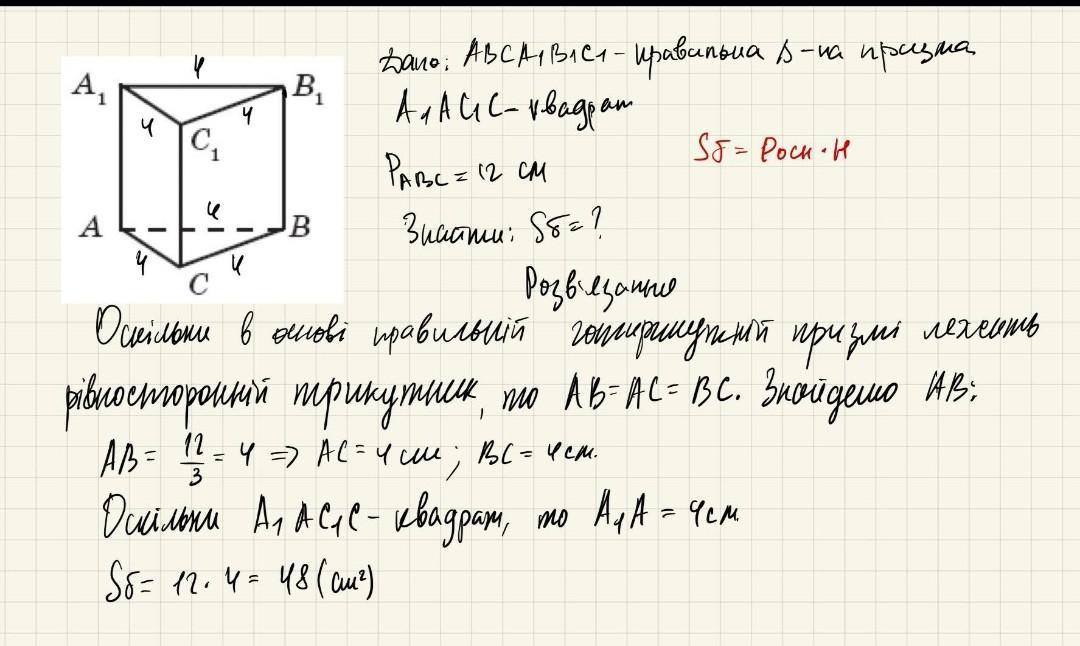 4
A₁ B₁
4 4
C₁
4
A B
4 4
C
Дано: ABCA₁B₁C₁ - правильна Δ-на призма
A₁AC₁C - квадрат
Sб = Pосн · H
P_ABC = 12 см
Знайти: Sб = ?
Розв'язання
Оскільки в основі правильній призмі лежить
рівносторонній трикутник, то AB = AC = BC. Знайдемо AB:
AB = 12/3 = 4 => AC = 4 см; BC = 4 см.
Оскільки A₁AC₁C - квадрат, то A₁A = 4 см
Sб = 12 · 4 = 48 (см²)